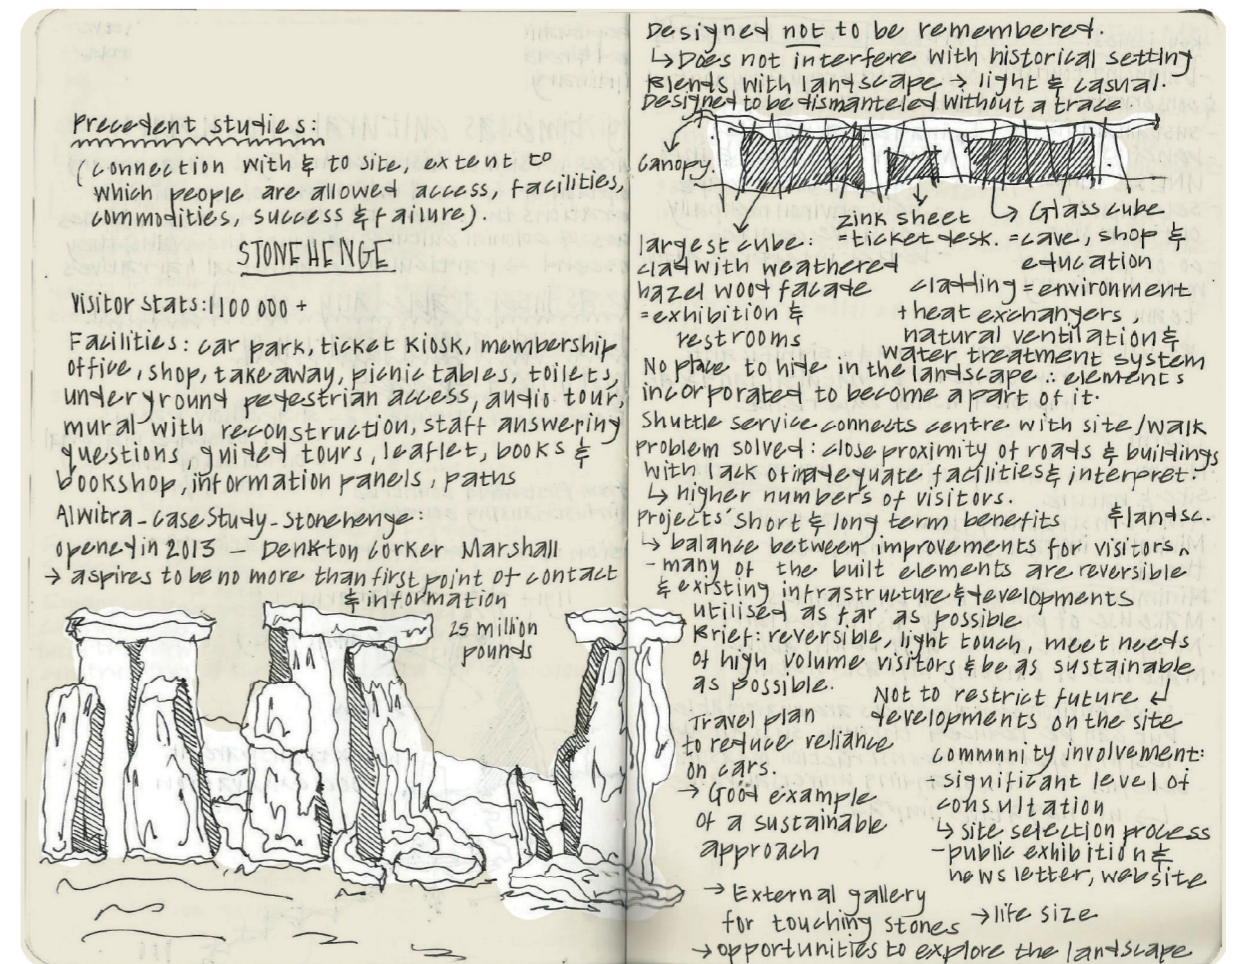 Precedent studies:
(connection with & to site, extent to
which people are allowed access, facilities,
commodities, success & failure).
STONEHENGE
Visitor stats: 1100 000 +
Facilities: car park, ticket kiosk, membership
office, shop, takeaway, picnic tables, toilets,
underground pedestrian access, audio tour,
mural with reconstruction, staff answering
questions, guided tours, leaflet, books &
bookshop, information panels, paths
Alwitra_Case Study_Stonehenge:
opened in 2013 — Denkton Corker Marshall
→ aspires to be no more than first point of contact
& information
25 million
pounds
Designed not to be remembered.
↳ Does not interfere with historical setting
Blends with landscape → light & casual.
Designed to be dismanteled without a trace
Canopy.
largest cube:
clad with weathered
hazel wood facade
= exhibition &
restrooms
zink sheet
= ticket desk.
Glass cube
= cave, shop &
education
cladding = environment
+ heat exchangers,
natural ventilation &
water treatment system
No place to hide in the landscape ∴ elements
incorporated to become a part of it.
Shuttle service connects centre with site/walk
Problem solved: close proximity of roads & buildings
with lack of inadequate facilities & interpret.
↳ higher number's of visitors.
Projects' short & long term benefits
→ balance between improvements for visitors ^ & landsc.
- many of the built elements are reversible
& existing infrastructure & developments
utilised as far as possible
Brief: reversible, light touch, meet needs
of high volume visitors & be as sustainable
as possible.
Not to restrict future
developments on the site
Travel plan
to reduce reliance
on cars.
→ Good example
of a sustainable
approach
community involvement:
- significant level of
consultation
↳ site selection process
- public exhibition &
newsletter, website
→ External gallery
for touching stones → life size
→ opportunities to explore the landscape